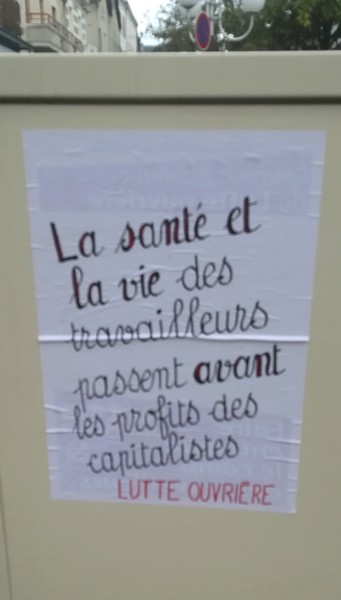 La santé et
la vie des
travailleurs
passent avant
les profits des
capitalistes
LUTTE OUVRIÈRE